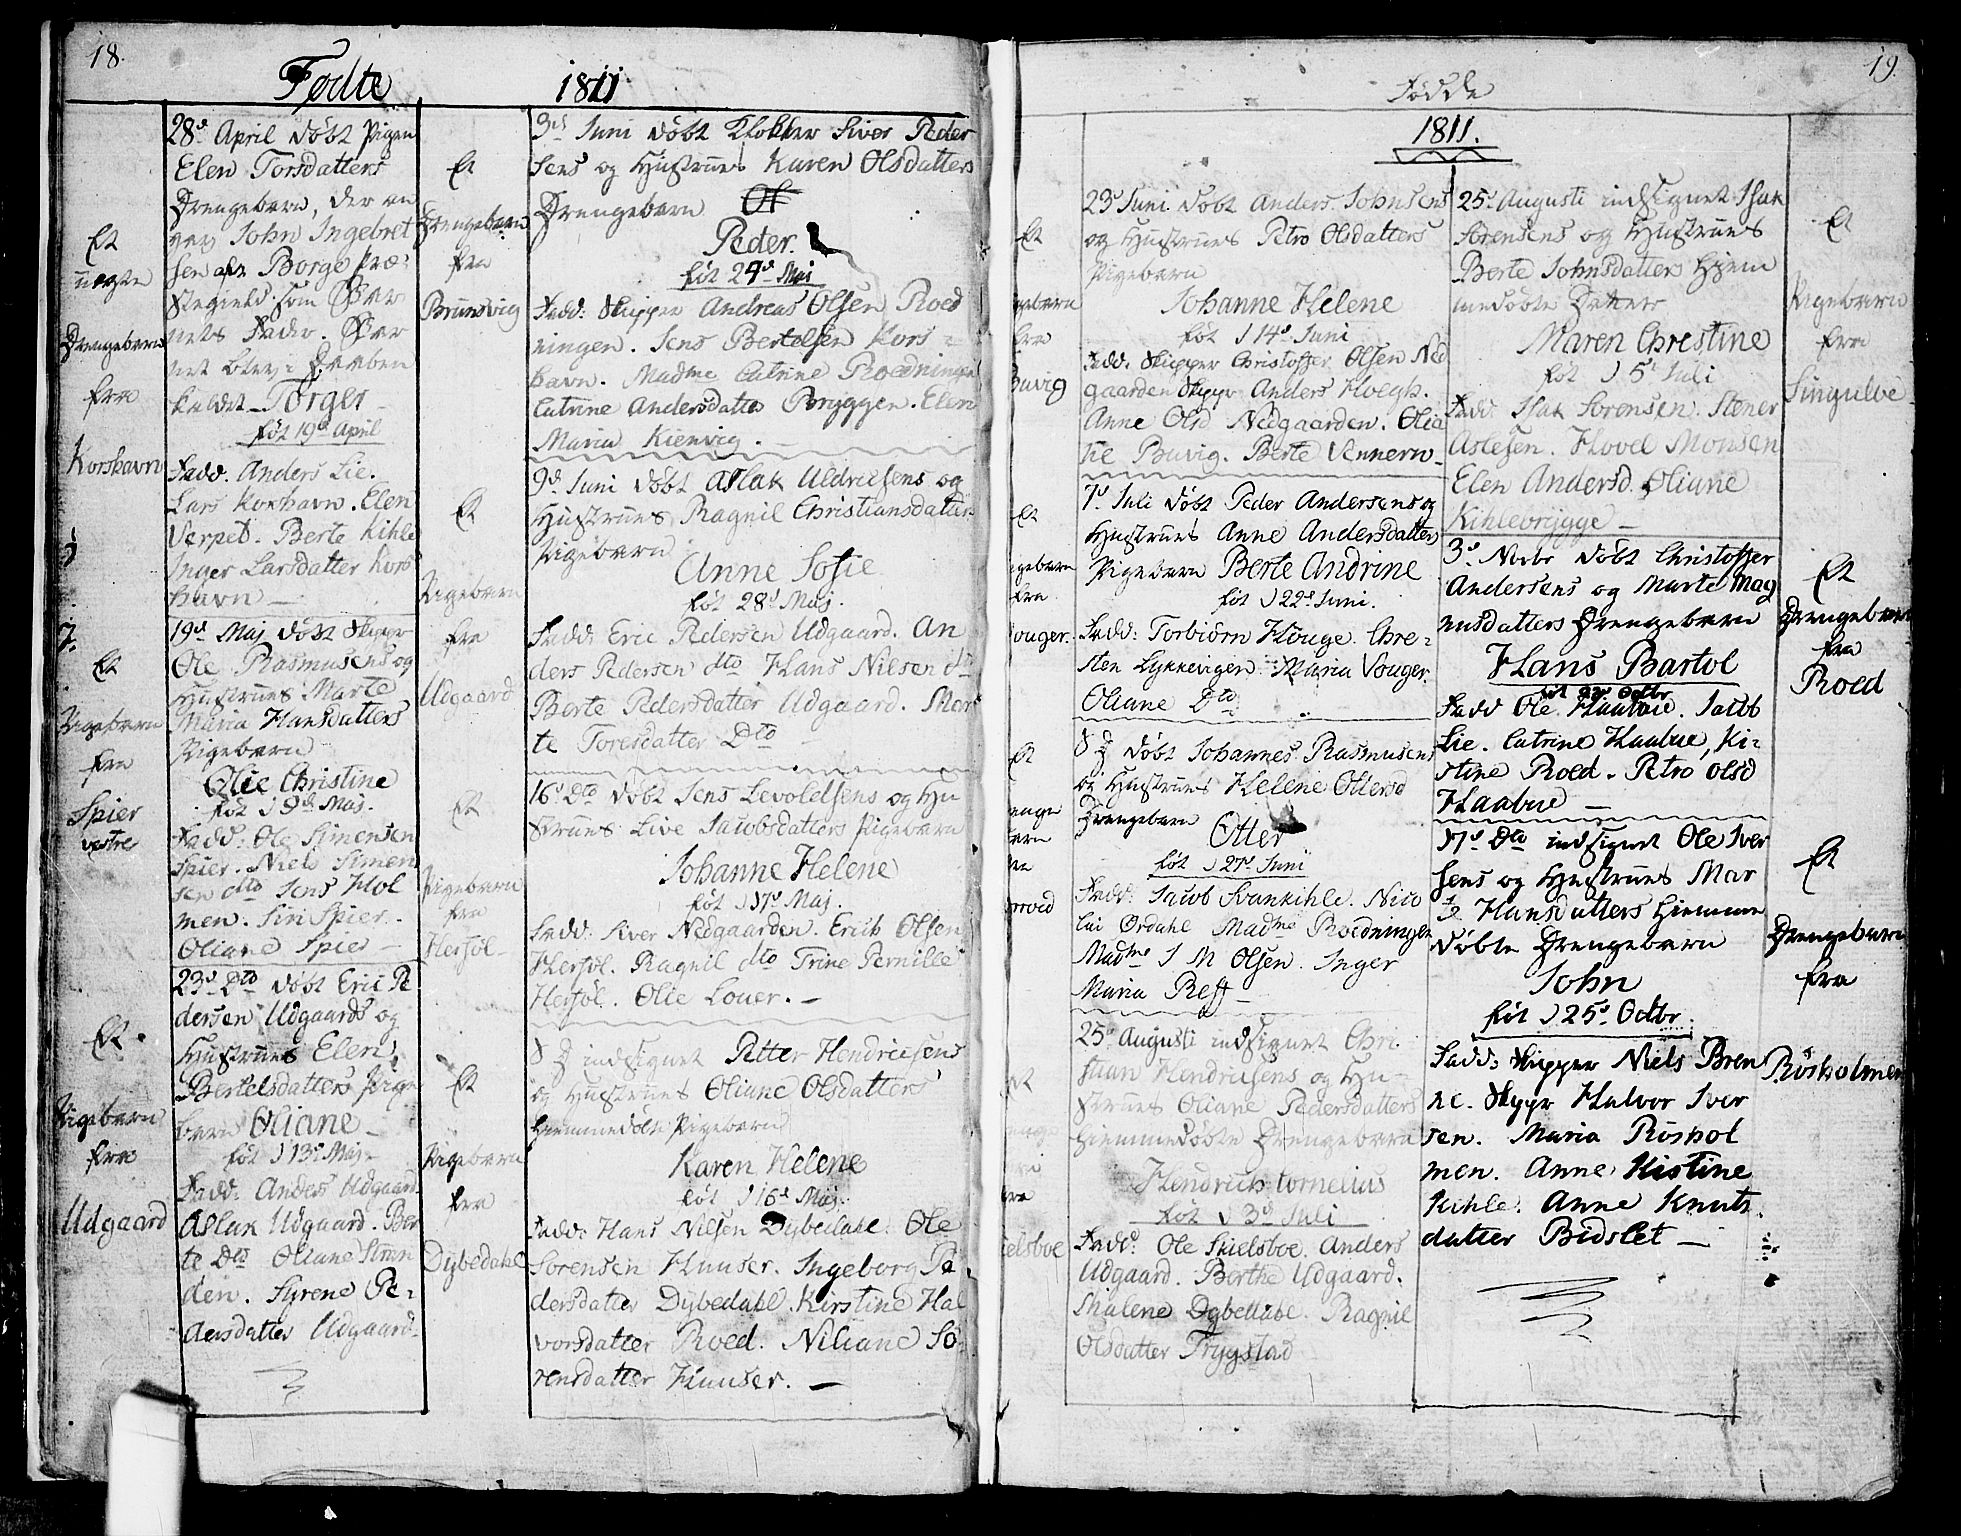 18.
Fødte 1811
Et
uægte
Drengebarn
fra
Korshavn
28d April døbt Pigen
Elen Torsdatters
Drengebarn, der an
gav John Ingebret
sen afr Borge Præ-
stegield som Bar
nets Fader. Bar
net blev i Daaben
kaldet Torger
føt 19d April
Fadd. Anders Lie.
Lars Korshavn. Elen
Verpet. Berte Kihle
Inger Larsdatter Kors
havn —
Et
Pigebarn
fra
Spier
vestre
19d Maj døbt Skippr
Ole Rasmusens og
Hustrues Marte
Maria Hansdatters
Pigebarn
Olie Christine
føt d 9d Maj.
Fadd: Ole Simensen
Spier. Niels Simen
sen dto Jens Hol
men. Siri Spier.
Oliane Spier —
Et
Pigebarn
fra
Udgaard
23d Dto døbt Eric Pe
dersen Udgaards og
Hustrues Elen
Bertelsdatters Pige
barn Oliane —
føt d 13d Maj —
Fadd: Anders Udgaard
Aslak Udgaard. Ber
te Dto Oliane Stran
den. Syrene Pe-
dersdatter Udgaard.
Et
Drengebarn
fra
Brunsvig
3d Juni døbt Klokker Siver Peder
sens og Hustrues Karen Olsdatters
Drengebarn Ol
Peder.
føt 24d Maj
Fadd: Skipper Andreas Olsen Roed
ningen. Jens Bertelsen Kors=
havn. Madme Catrine Roedningen
Catrine Andersdatter Bryggen. Elen
Maria Kienvig. —
Et
Pigebarn
fra
Udgaard
9d Juni døbt Aslak Uldricsens og
Hustrues Ragnil Christiansdatters
Pigebarn
Anne Sofie
føt 28d Maj.
Fadd: Eric Pedersen Udgaard. An
ders Pedersen dto Hans Nilsen dto
Berte Pedersdatter Udgaard. Mar
te Toresdatter Dto
Et
Pigebarn
fra
Herføl
16d Dto døbt Jens Levoldsens og Hu
strues Live Jacobsdatters Pigebarn
Johanne Helene
føt d 17d Maj.
Fadd: Siver Nedgaarden. Erick Olsen
Herføl. Ragnil dto Trine Pernille
Herføl. Olie Louer. —
Et
Pigebarn
fra
Dybedahl
indsignet Petter Hendricsens
og Hustrues Oliane Olsdatters
hiemmedøbte Pigebarn
Karen Helene
føt d 16d Maj.
Fadd: Hans Nilsen Dybedahl. Ole
Sorensen Huuser. Ingeborg Pe
dersdatter Dybedahl. Kirstine Hal
vorsdatter Roed. Niliane So-
rensdatter Huuser. —
19.
Fødde
1811.
Et
gebarn
fra
Buvig
23d Juni døbt Anders Johnsens
og Hustrues Petro Olsdatters
Pigebarn
Johanne Helene
føt d 14d Juni
Fadd: Skipper Christoffer Olsen Ned
gaarden Skippr Anders Hoegh.
Anne Olsd Nedgaarden. Olia
Buvig. Berte Vennero
Et
gebarn
fra
ouger.
7d Juli døbt Peder Andersens og
Hustrues Anne Andersdatters
Pigebarn Berte Andrine
føt d 22d Juni.
Fadd: Torbiörn Houge. Chre-
sten Lykkevigen. Maria Vouger
Oliane Dto
Et
enge
arn
døbt Johannes Rasmusens
og Hustrues Helene Ottersd
Drengebarn
Otter
føt d 27d Juni
Fadd: Jacob Svankihle. Nico
lai Ørdahl Madme Roedningen
Madme I M Olsen. Inger
Maria Reff —
Et
enge
fra
ielsboe
25d Augusti indsignet Chri
stian Hendricsens og Hu-
strues Oliane Pedersdatters
hiemmedøbte Drengebarn
Hendrich Cornelius
føt d 3d Juli
Fadd: Ole Skielsboe. Anders
Udgaard. Berthe Udgaard.
Malene Dybedahl. Ragnil
Olsdatter Trygstad
25d Augusti indsignet Isak
Sörensens og Hustrues
Berte Johnsdatters hjem
medøbte Datter
Maren Chrestine
føt d 5d Juli
Fadd: Isak Sorensen. Stener
Aslesen. Hovel Monsen
Elen Andersd. Oliane
Kihlebrygge —
Et
Pigebarn
fra
Singulöe
3d Novbr døbt Christoffer
Andersens og Marte Mag
nusdatters Drengebarn
Hans Bartol
føt 23d Octbr
Fadd Ole Haabue. Jacob
Lie. Catrine Haabue, Ki-
stine Roed. Petro Olsd
Haabue —
Et
Drengebarn
fra
Roed
17d Dto indsignet Ole Iver
sens og Hustrues Mar
te Hansdatters hiemme
døbte Drengebarn
John
føt d 25d Octbr.
Fadd: Skipper Niels Bren
ne. Skyppr Halvor Iver
sen. Maria Röshol
men. Anne Kistine
Kihle. Anne Knuts
datter Bidslet —
Et
Drengebarn
fra
Rösholmen